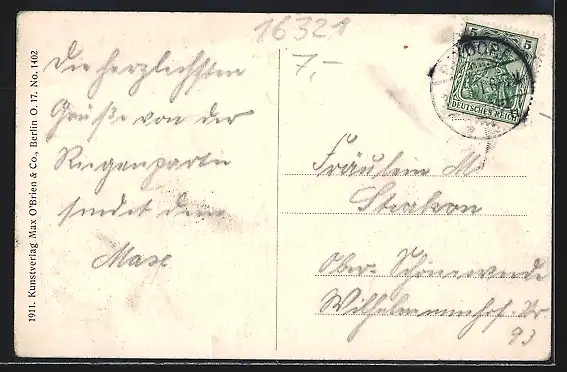 16321
7,-
Die herzlichsten
Grüße von der
Rügenpartie
sendet dein
Max
5 5
DEUTSCHES REICH
Fräulein M
Ober-Schöneweide
Wilhelminenhof-Str.
93
1911. Kunstverlag Max O'Brien & Co., Berlin O. 17. No. 1402